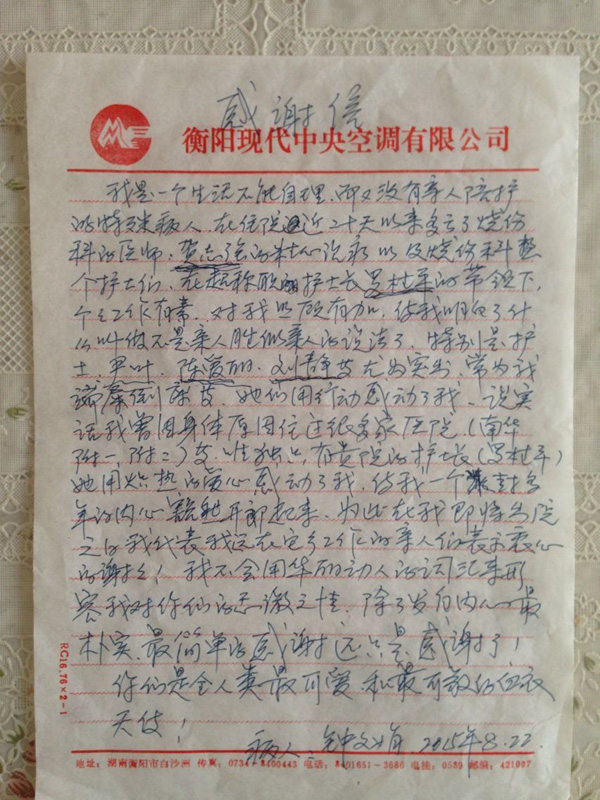 感谢信
衡阳现代中央空调有限公司
我是一个生活不能自理，而又没有亲人陪护
的特殊病人，在住院近二十天以来多亏了烧伤
科的医师，贺志强的精心诊病以及烧伤科整
个护士们，在护士长的带领下，
个个工作有素，对我照顾有加，使我明白了什
么叫做不是亲人胜似亲人的说法了，特别是护
士，陈爱丽，刘静等尤为突出，常为我
端屎倒尿等，她们用行动感动了我，说实
话我曾因身体原因住过很多家医院，（南华
附一，附二）等，唯独只有贵院的护士长
她用炽热的爱心感动了我，使我一个封多
年的内心开朗起来，为此在我即将出院
之日我代表我远在它乡工作的亲人们表示衷心
的谢谢！我不会用华丽动人的词汇来形
容我对你们的感激之情，除了发自内心最
朴实，最简单的感谢还只是感谢了！
你们是全人类最可爱和最可敬的白衣
天使！
病人：钟文娟 2015年8.22.
地址：湖南衡阳市白沙洲 传真：0734-8400443 电话：8401651-3686 电挂：0589 邮编：421007
RC16.76×2-1